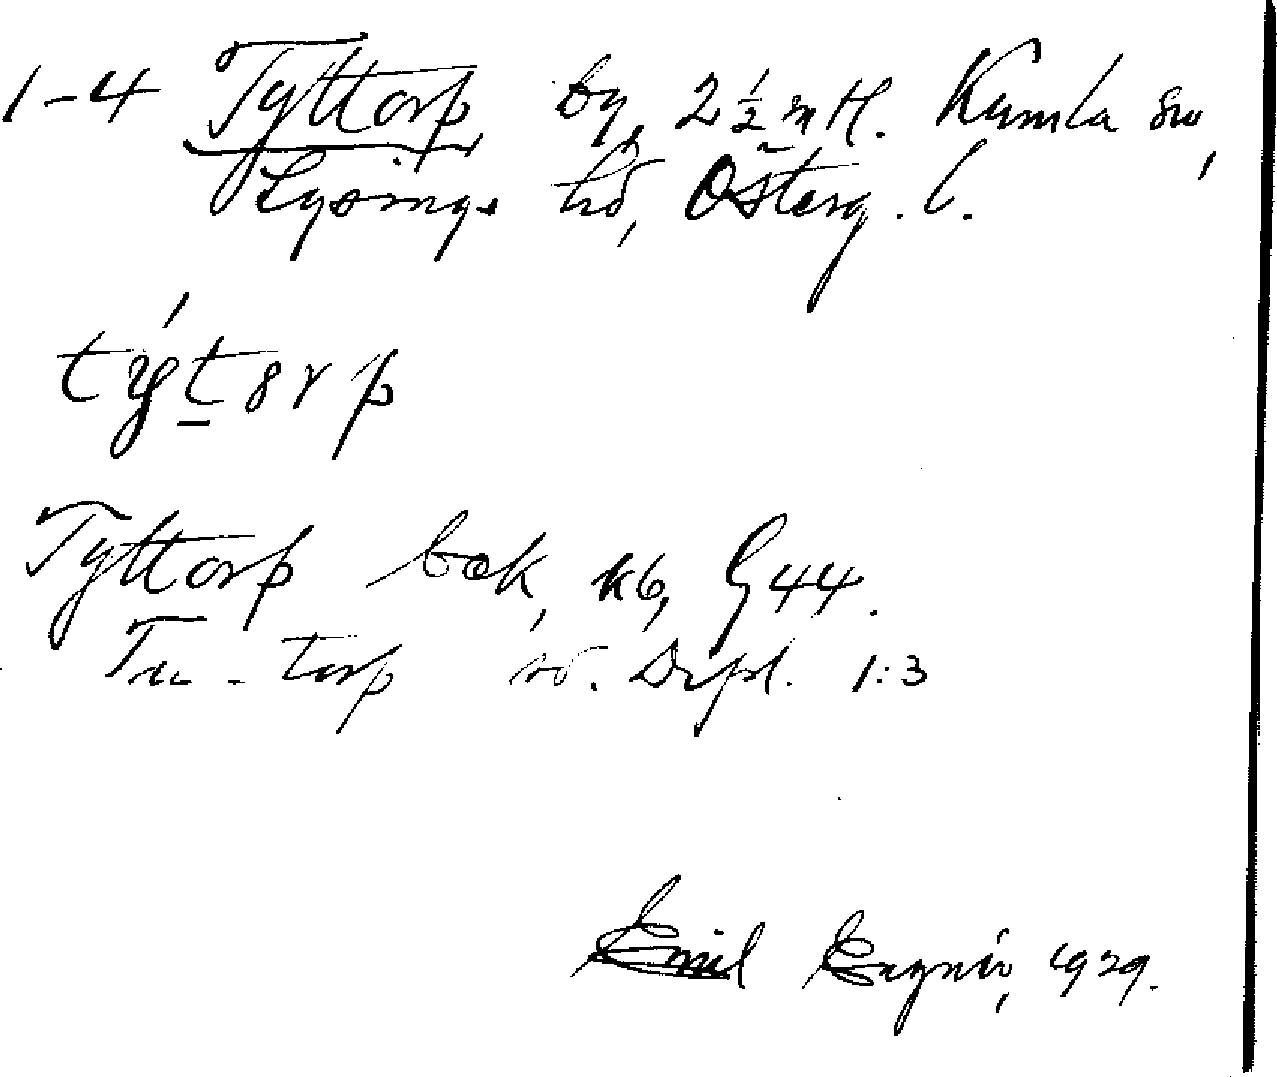 1-4 Tyttorp by, 2 ½ mtl. Kumla sn,
Lysings hd, Österg. l.
týt8rp
Tyttorp Gek, kb, G 44.
Tu - torp sv. Dipl. 1:3
Emil Engnér, 1929.